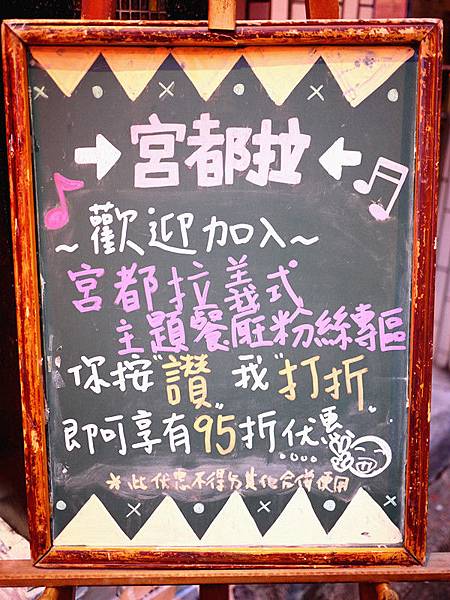 →宮都拉←
~歡迎加入~
宮都拉義式
主題餐廳粉絲專區
你按"讚"我"打折"
即可享有95折優惠
*此優惠不得與其他合併使用